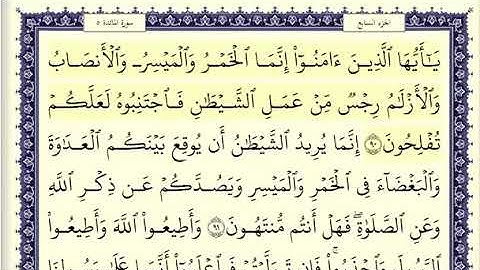 الجزء السابع سورة المائدة ٥
يَٰٓأَيُّهَا ٱلَّذِينَ ءَامَنُوٓا۟ إِنَّمَا ٱلْخَمْرُ وَٱلْمَيْسِرُ وَٱلْأَنصَابُ
وَٱلْأَزْلَٰمُ رِجْسٌ مِّنْ عَمَلِ ٱلشَّيْطَٰنِ فَٱجْتَنِبُوهُ لَعَلَّكُمْ
تُفْلِحُونَ ٩٠ إِنَّمَا يُرِيدُ ٱلشَّيْطَٰنُ أَن يُوقِعَ بَيْنَكُمُ ٱلْعَدَٰوَةَ
وَٱلْبَغْضَآءَ فِى ٱلْخَمْرِ وَٱلْمَيْسِرِ وَيَصُدَّكُمْ عَن ذِكْرِ ٱللَّهِ
وَعَنِ ٱلصَّلَوٰةِ ۖ فَهَلْ أَنتُم مُّنتَهُونَ ٩١ وَأَطِيعُوا۟ ٱللَّهَ وَأَطِيعُوا۟
ٱلرَّسُولَ وَٱحْذَرُوا۟ ۚ فَإِن تَوَلَّيْتُمْ فَٱعْلَمُوٓا۟ أَنَّمَا عَلَىٰ رَسُولِنَا